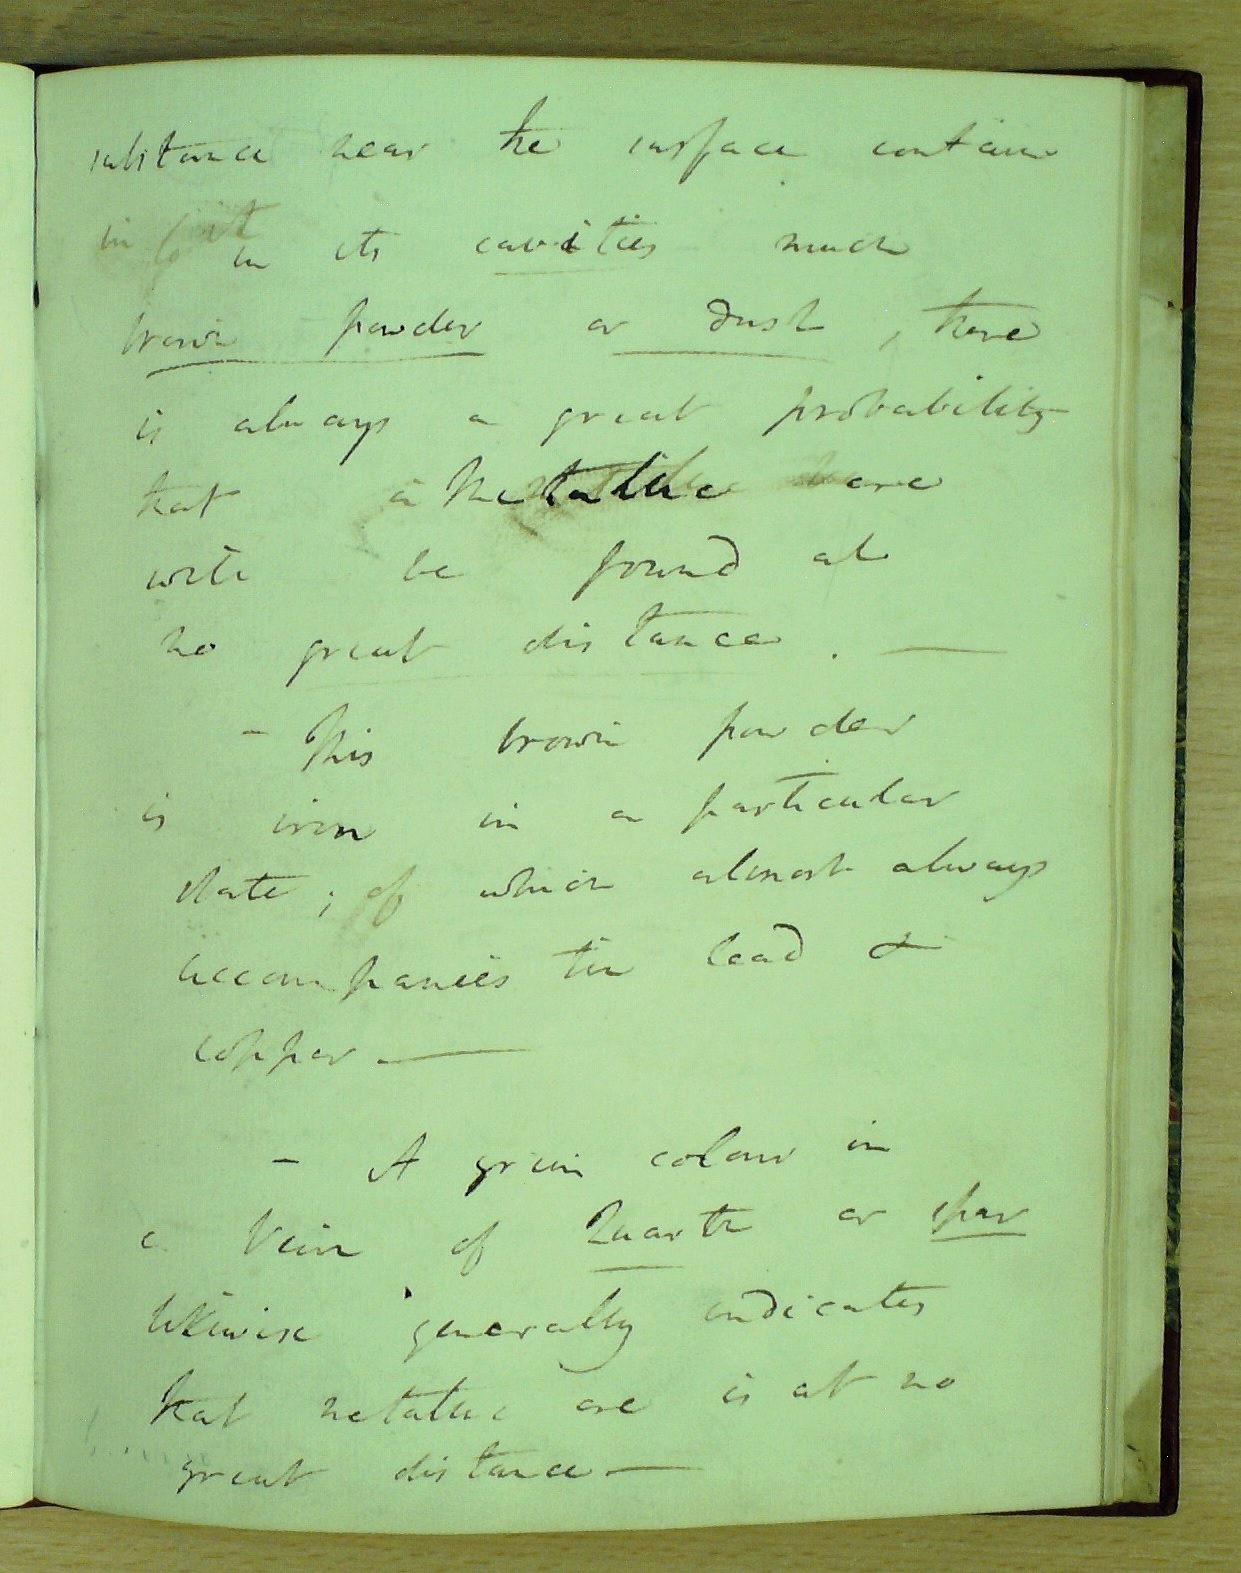 substance near the surface contain
in its cavities much
brown powder or dust, there
is always a great probability
that a Metallic ore
will be found at
no great distance. —
- This brown powder
is iron in a particular
state; of which almost always
accompanies tin lead &
copper —
- A green colour in
a Vein of Quartz or spar
likewise generally indicates
that metallic ore is at no
great distance —